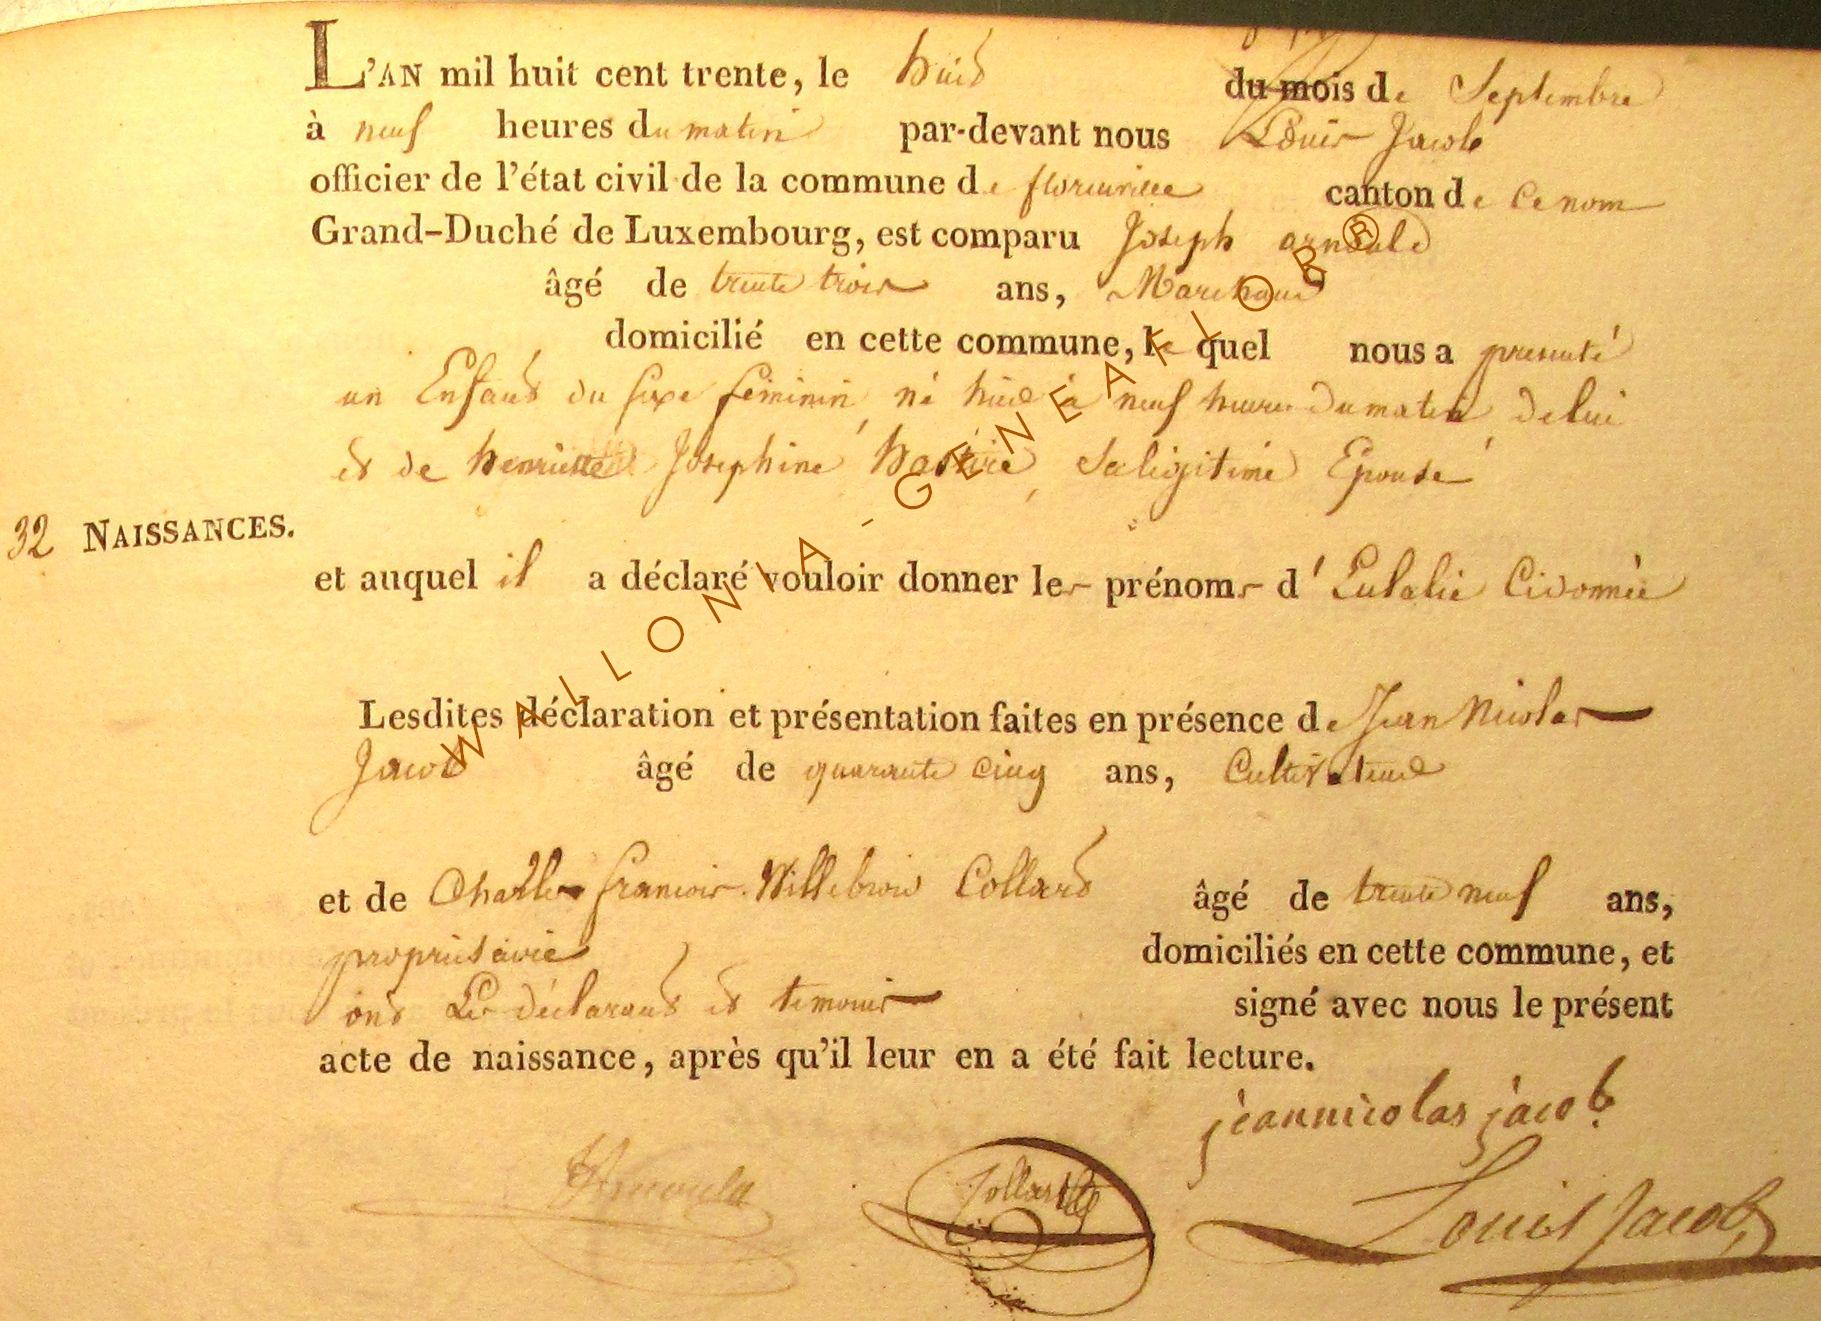 L'AN mil huit cent trente, le huit du mois de Septembre
à neuf heures du matin par-devant nous Louis Jacob
officier de l'état civil de la commune de florenville canton de ce nom
Grand-Duché de Luxembourg, est comparu Joseph arnould
âgé de trente trois ans, Marchand
domicilié en cette commune, le quel nous a presenté
un Enfant du sexe féminin, né huit à neuf heures du matin de lui
et de henriette Josephine, sa légitime Epouse
32 NAISSANCES.
et auquel il a déclaré vouloir donner les prénoms d'Eulalie Cidonnée
Lesdites déclaration et présentation faites en présence de Jean Nicolas
Jacob âgé de quarante cinq ans, Cultivateur
et de Charles francois Willebrow Collard âgé de trente neuf ans,
propriétairie domiciliés en cette commune, et
ont Les déclarant et temoins signé avec nous le présent
acte de naissance, après qu'il leur en a été fait lecture.
jeannicolas jacob
Arnould Collard Louis Jacob
WALLONIA - GENEAFLOR ®